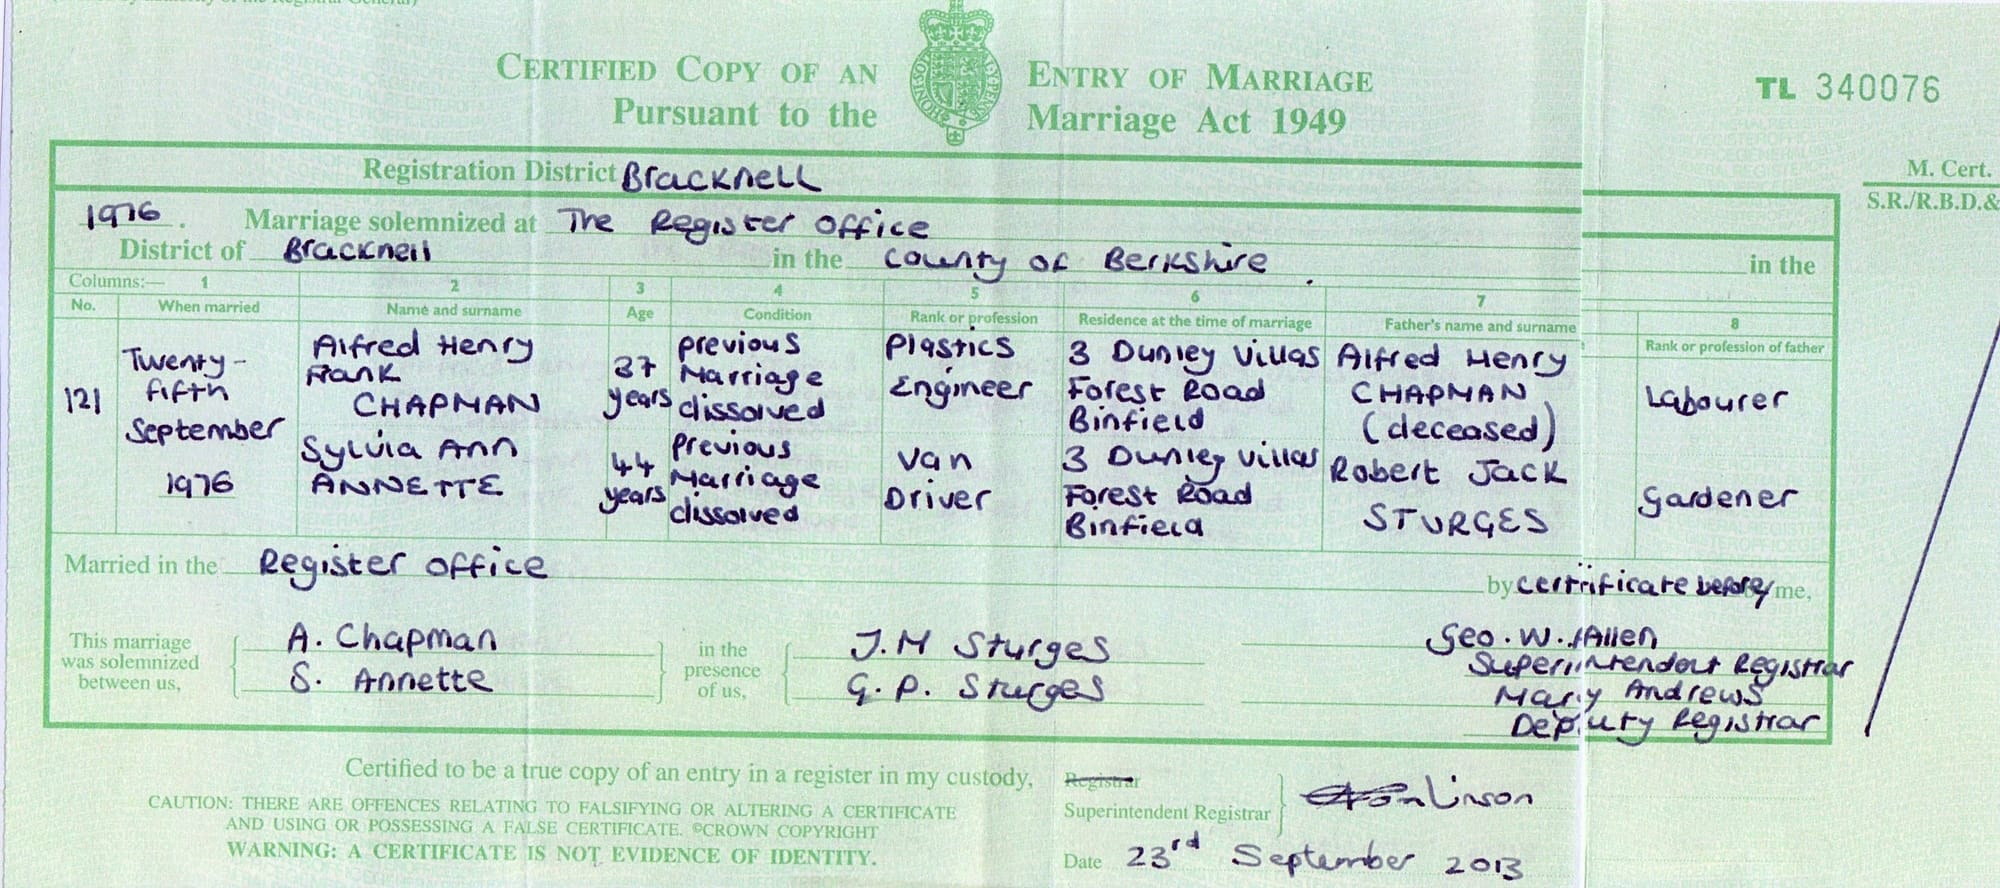 CERTIFIED COPY OF AN ENTRY OF MARRIAGE
Pursuant to the Marriage Act 1949
TL 340076
M. Cert.
S.R./R.B.D.&
Registration District Bracknell
1976. Marriage solemnized at The Register Office
District of Bracknell in the County of Berkshire. in the
Columns:— 1 2 3 4 5 6 7 8
No. When married Name and surname Age Condition Rank or profession Residence at the time of marriage Father's name and surname Rank or profession of father
121
Twenty-
fifth
September
1976
Alfred Henry
Frank
CHAPMAN
37
years
previous
Marriage
dissolved
Plastics
Engineer
3 Dunley Villas
Forest Road
Binfield
Alfred Henry
CHAPMAN
(deceased)
Labourer
Sylvia Ann
ANNETTE
44
years
Previous
Marriage
dissolved
Van
Driver
3 Dunley Villas
Forest Road
Binfield
Robert Jack
STURGES
Gardener
Married in the Register Office by certificate before me,
This marriage
was solemnized
between us,
A. Chapman
S. Annette
in the
presence
of us,
J.M Sturges
G.P. Sturges
Geo. W. Allen
Superintendent Registrar
Mary Andrews
Deputy Registrar
Certified to be a true copy of an entry in a register in my custody,
Registrar
Superintendent Registrar
Tomlinson
CAUTION: THERE ARE OFFENCES RELATING TO FALSIFYING OR ALTERING A CERTIFICATE
AND USING OR POSSESSING A FALSE CERTIFICATE. ©CROWN COPYRIGHT
WARNING: A CERTIFICATE IS NOT EVIDENCE OF IDENTITY.
Date 23rd September 2013